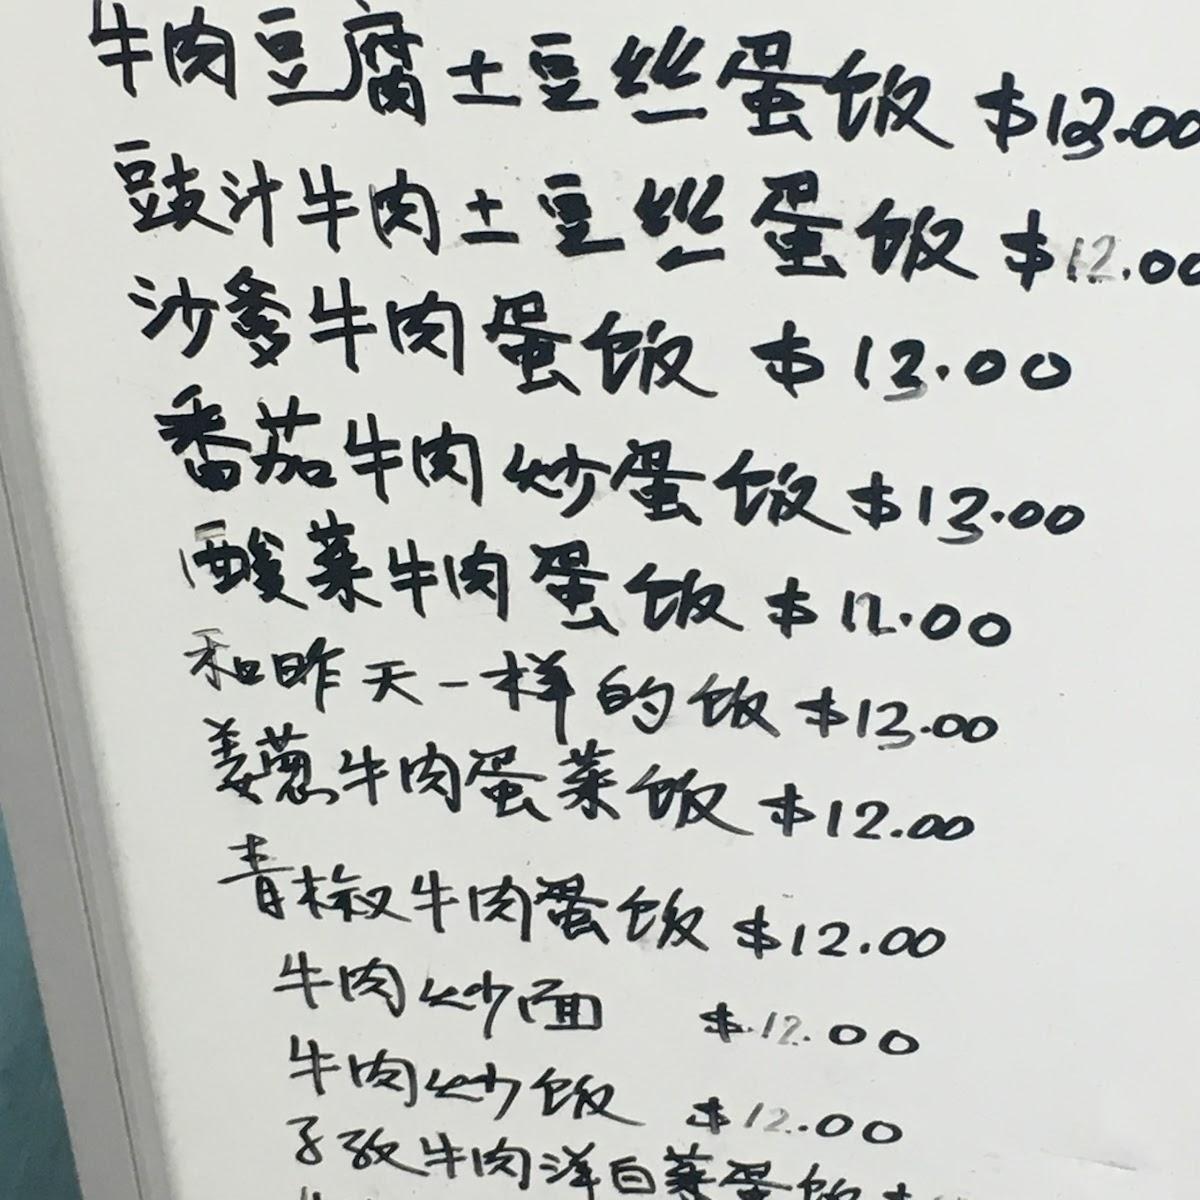 牛肉豆腐土豆丝蛋饭 $13.00
豉汁牛肉土豆丝蛋饭 $12.00
沙爹牛肉蛋饭 $13.00
番茄牛肉炒蛋饭 $13.00
酸菜牛肉蛋饭 $12.00
和昨天一样的饭 $13.00
姜葱牛肉蛋菜饭 $12.00
青椒牛肉蛋饭 $12.00
牛肉炒面 $12.00
牛肉炒饭 $12.00
牛肉洋白菜蛋饭